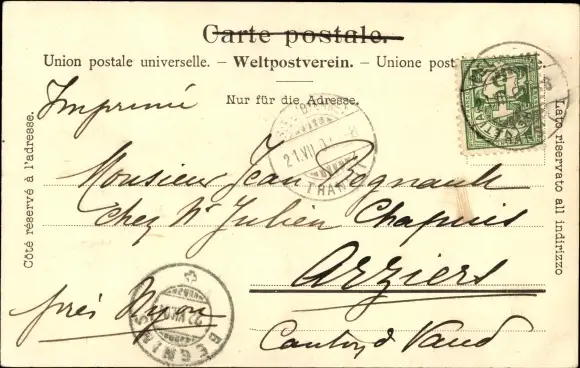 Carte postale.
Union postale universelle. – Weltpostverein. – Unione post
Nur für die Adresse.
Côté réservé à l'adresse.
Lato riservato all indirizzo
Imprimé
Monsieur Jean Regnault
chez Mr Julien Chapuis
Arziers
près Nyon
Canton d Vaud
21.VII.
TRANSIT
BEGNINS